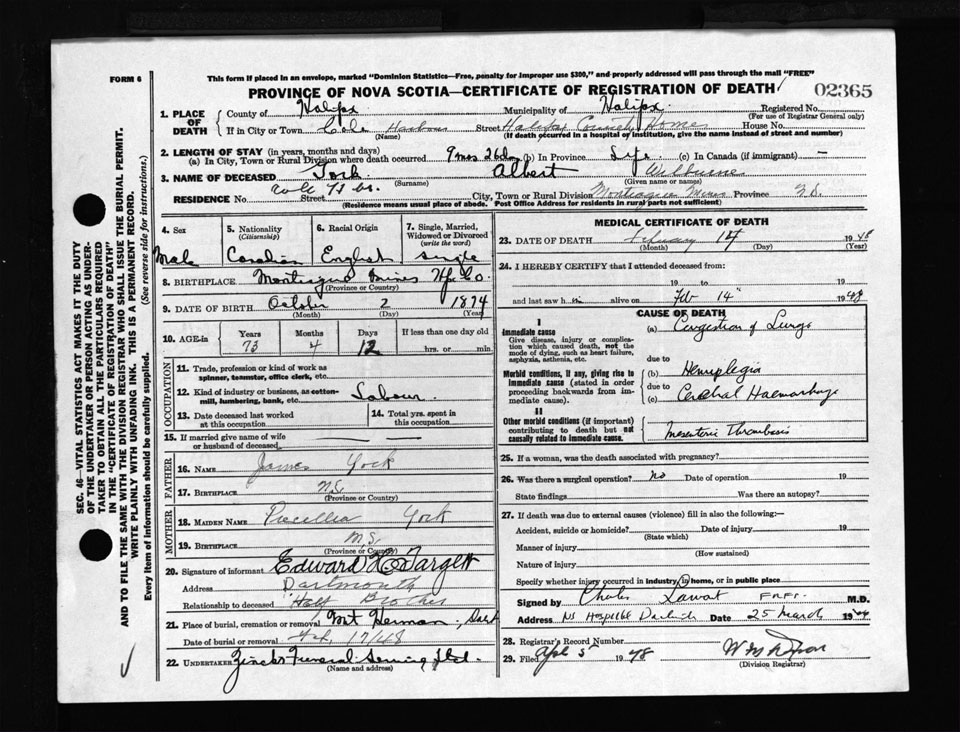 FORM 6
This form if placed in an envelope, marked "Dominion Statistics—Free, penalty for improper use $300," and properly addressed will pass through the mail "FREE"
PROVINCE OF NOVA SCOTIA—CERTIFICATE OF REGISTRATION OF DEATH
02365
1. PLACE OF DEATH
County of Halifax Municipality of Halifax Registered No.
(For use of Registrar General only)
If in City or Town Cole Harbour Street Halifax County Home House No.
(Name) (If death occurred in a hospital or institution, give the name instead of street and number)
2. LENGTH OF STAY (in years, months and days)
(a) In City, Town or Rural Division where death occurred 9 mos 26 da (b) In Province Life (c) In Canada (if immigrant) —
3. NAME OF DECEASED York Albert Wilburne
(Surname) (Given name or names)
RESIDENCE No. Street City, Town or Rural Division Montague Mines Province N.S.
(Residence means usual place of abode. Post Office Address for residents in rural parts not sufficient)
4. Sex
Male
5. Nationality
(Citizenship)
Canadian
6. Racial Origin
English
7. Single, Married, Widowed or Divorced
(write the word)
Single
8. BIRTHPLACE Montague Mines Hfx Co.
(Province or Country)
9. DATE OF BIRTH October 2 1874
(Month) (Day) (Year)
10. AGE in
Years Months Days If less than one day old
73 4 12 hrs. or min.
OCCUPATION
11. Trade, profession or kind of work as spinner, teamster, office clerk, etc.
12. Kind of industry or business, as cotton-mill, lumbering, bank, etc. Labour
13. Date deceased last worked at this occupation
14. Total yrs. spent in this occupation
15. If married give name of wife or husband of deceased — —
FATHER
16. NAME James York
17. BIRTHPLACE N.S.
(Province or Country)
MOTHER
18. MAIDEN NAME Precillia York
19. BIRTHPLACE N.S.
(Province or Country)
20. Signature of informant Edward Targett
Address Dartmouth
Relationship to deceased Half Brother
21. Place of burial, cremation or removal Mt Herman, Dart
Date of burial or removal Feb, 17/48
22. UNDERTAKER Zincks Funeral Service Ltd.
(Name and address)
MEDICAL CERTIFICATE OF DEATH
23. DATE OF DEATH February 14 1948
(Month) (Day) (Year)
24. I HEREBY CERTIFY that I attended deceased from:
19 to 19
and last saw h im alive on Feb 14" 1948
CAUSE OF DEATH
I
Immediate cause
Give disease, injury or complication which caused death, not the mode of dying, such as heart failure, asphyxia, asthenia, etc.
(a) Congestion of Lungs
due to
Morbid conditions, if any, giving rise to immediate cause (stated in order proceeding backwards from immediate cause).
(b) Hemiplegia
due to
(c) Cerebral Haemorrhage
II
Other morbid conditions (if important) contributing to death but not causally related to immediate cause.
Mesenteric Thrombosis
25. If a woman, was the death associated with pregnancy?
26. Was there a surgical operation? No Date of operation 19
State findings Was there an autopsy?
27. If death was due to external causes (violence) fill in also the following:—
Accident, suicide or homicide? Date of injury 19
(State which)
Manner of injury
(How sustained)
Nature of injury
Specify whether injury occurred in industry, in home, or in public place
Signed by Charles M.D.
Address NS Hospital Date 25 March 19
28. Registrar's Record Number
29. Filed Apl 5 1948
(Division Registrar)
SEC. 46—VITAL STATISTICS ACT MAKES IT THE DUTY
OF THE UNDERTAKER OR PERSON ACTING AS UNDERTAKER TO OBTAIN ALL THE PARTICULARS REQUIRED
IN THE "CERTIFICATE OF REGISTRATION OF DEATH"
AND TO FILE THE SAME WITH THE DIVISION REGISTRAR WHO SHALL ISSUE THE BURIAL PERMIT.
WRITE PLAINLY WITH UNFADING INK. THIS IS A PERMANENT RECORD.
Every item of information should be carefully supplied. (See reverse side for instructions.)